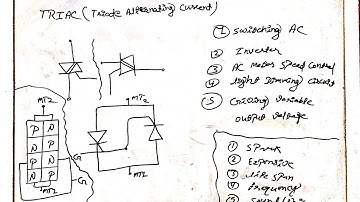 TRIAC (Triode Alternating Current)
① Switching AC
② Inverter
③ AC Motor Speed Control
④ Light Dimming Circuit
⑤ variable
output voltage
MT2
P N
N P
P N
N
MT1
G
MT2
MT1
G
① Spark
② Expensive
③ Life Span
④ Frequency
⑤